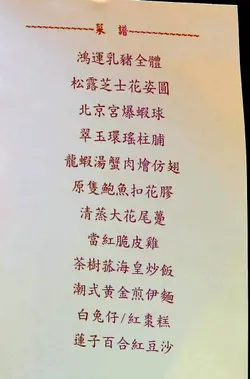 菜譜
鴻運乳豬全體
松露芝士花姿圓
北京宮爆蝦球
翠玉環瑤柱脯
龍蝦湯蟹肉燴仿翅
原隻鮑魚扣花膠
清蒸大花尾躉
當紅脆皮雞
茶樹菰海皇炒飯
潮式黃金煎伊麵
白兔仔/紅棗糕
蓮子百合紅豆沙